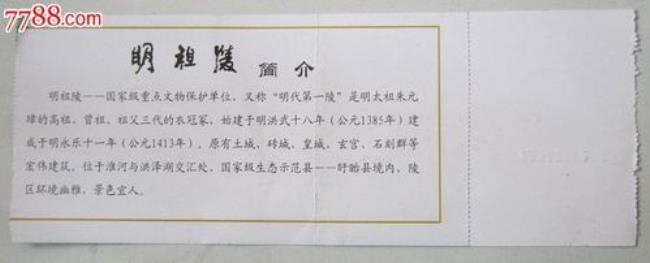 7788.com
明祖陵 简介
明祖陵——国家级重点文物保护单位，又称“明代第一陵”是明太祖朱元
璋的高祖、曾祖、祖父三代的衣冠冢，始建于明洪武十八年（公元1385年）建
成于明永乐十一年（公元1413年）。原有土城、砖城、皇城、玄宫、石刻群等
宏伟建筑。位于淮河与洪泽湖交汇处、国家级生态示范县——盱眙县境内，陵
区环境幽雅、景色宜人。